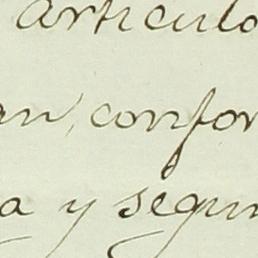 articulo
an, confor
a y segun